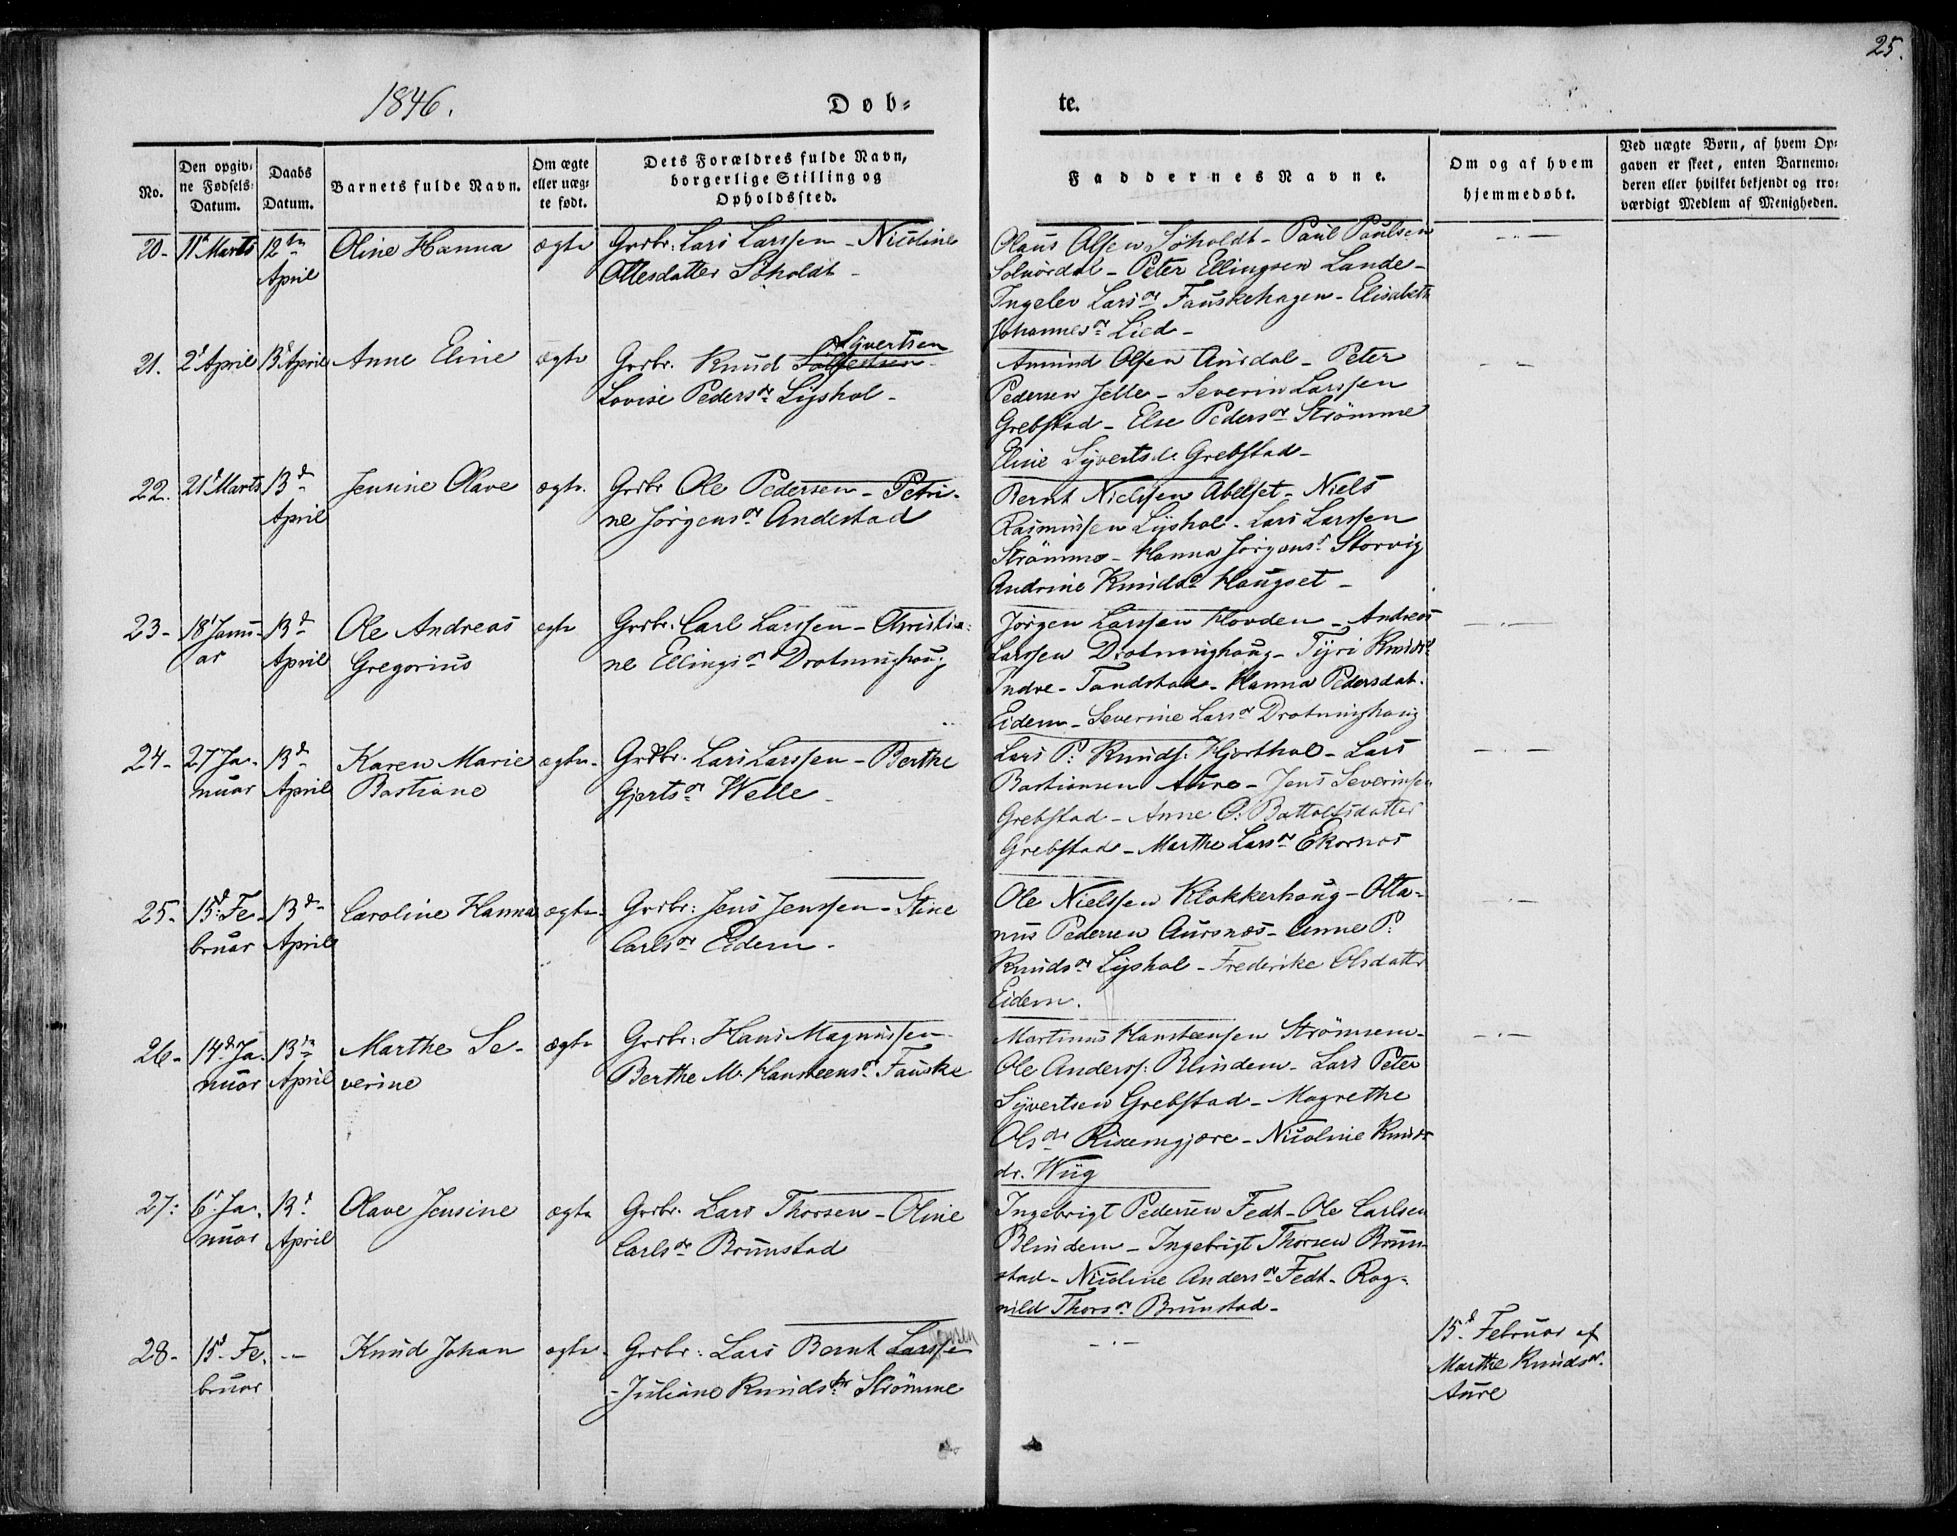 25.
1846.
Døb-
te.
No.
Den opgiv-
ne Fødsels-
Datum.
Daabs
Datum.
Barnets fulde Navn.
Om ægte
eller uæg-
te født.
Dets Forældres fulde Navn,
borgerlige Stilling og
Opholdssted.
Faddernes Navne.
Om og af hvem
hjemmedøbt.
Ved uægte Børn, af hvem Op-
gaven er skeet, enten Barnemo-
deren eller hvilket bekjendt og tro-
værdigt Medlem af Menigheden.
20-
11t Marts
12te
April
Oline Hanna
ægte
Grbr: Lars Larssen - Nicoline
Ottesdatter Søholdt -
Olaus Olsen Søholdt - Paul Paulsen
Solnørdal - Peter Ellingsen Lande -
Ingelev Larsdr Fauskehagen - Elisabeth
Johannesdr Lied -
21.
2d April
13d April
Anne Eline
ægte
Syvertsen
Grbr. Knud
Lovise Pedersdr Lyshol -
Amund Olsen Aursdal - Peter
Pedersen Jelle - Severin Larssen
Grebstad - Else Pedersdr Strømme
Eline Syvertsdr Grebstad -
22.
21d Marts
13d
April
Jensine Olave
ægte.
Grbr Ole Pedersen - Petri-
ne Jørgensdr Andestad
Bernt Nielssen Abelset - Niels
Rasmussen Lyshol - Lars Larssen
Strømme - Hanna Jørgensdr Storvig
Andrine Knudsdr Haugset -
23-
18d Janu-
ar
13d
April
Ole Andreas
Gregorius
ægte
Grbr: Carl Larssen - Christia-
ne Ellingsdr Drotninghaug
Jørgen Larssen Hovden - Andreas
Larssen Drotninghaug - Tyri Knudsd
Indre-Tandstad - Hanna Pedersdat.
Eidem - Severine Larsdr Drotninghaug
24-
27d Ja-
nuar
13d
April
Karen Marie
Bastiane
ægte-
Grbr. Lars Larssen - Berthe
Gjertsdr Welle -
Lars P: Knuds: Hjorthol - Lars
Bastiansen Aure - Jens Severinsen
Grebstad - Anne P: Battolfsdatter
Grebstad - Marthe Larsdr Ekornes
25-
15d Fe-
bruar
13d
April
Caroline Hanna
ægte-
Grbr: Jens Jenssen - Stine
Carlsdr Eidem -
Ole Nielssen Klokkerhaug - Otta-
nus Pedersen Aursnes - Anne P:
Knudsdr Lyshol - Frederike Olsdatter
Eidem.
26-
14d Ja-
nuar
13de
April
Marthe Se-
verine
ægte
Grbr: Hans Magnussen -
Berthe M. Hansteensdr Fauske
Martinus Hansteensen Strømsem -
Ole Anderss: Blindem - Lars Peter
Syvertsen Grebstad - Magrethe
Olsdr Risemgjære - Nicoline Knuds
dr. Wiig
27:
6d Ja-
nuar
13d
April
Olave Jensine
ægte
Grbr. Lars Thorsen - Oline
Carlsdr Brunstad
Ingebrigt Pedersen Fedt - Ole Carlsen
Blindem - Ingebrigt Thorsen Brun-
stad - Nicoline Andersdr Fedt - Rag-
nild Thorsdr Brunstad -
28-
15d Fe-
bruar
Knud Johan
ægte-
Jensen
Grbr: Lars Bernt Larssen
- Juliane Knudsdr Strømme
15d Februar af
Marthe Knudsdr.
Aure